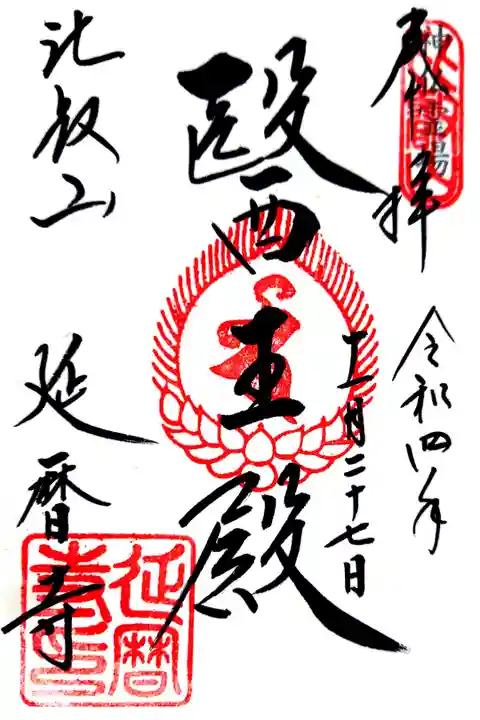 奉拝
神仏霊場
令和四年
十二月二十七日
醫王殿
比叡山
延暦寺
延暦寺印